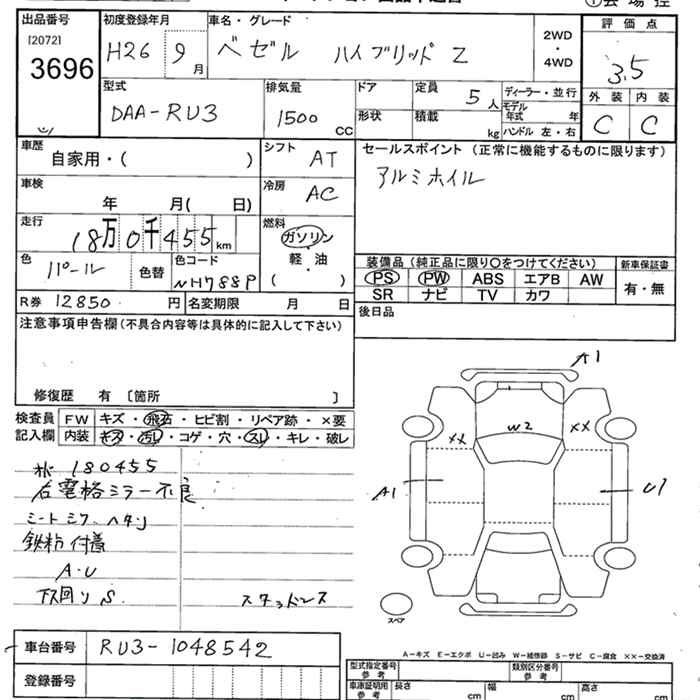 出品番号 初度登録年月 車名・グレード 評価点
[2072] H26 9月 ベゼル ハイブリッド Z 2WD・4WD 3.5
3696
外装 内装
C C
型式 排気量 ドア 定員 ディーラー・並行
DAA-RU3 1500cc 5人 モデル年式 年
形状 積載 kg ハンドル 左・右
車歴 シフト セールスポイント (正常に機能するものに限ります)
自家用・( ) AT アルミホイル
車検 冷房
年 月( 日) AC
走行 燃料
18万0千455km ガソリン
軽・油
( )
色 色替 色コード 装備品 (純正品に限り○をつけてください) 新車保証書
パール NH788P PS PW ABS エアB AW 有・無
SR ナビ TV カワ
R券 12850円 名変期限 月 日 後日品
注意事項申告欄 (不具合内容等は具体的に記入して下さい)
修復歴 有 [箇所 ]
検査員 FW キズ・飛石・ヒビ割・リペア跡・×要
記入欄 内装 キズ・汚レ・コゲ・穴・スレ・キレ・破レ
180455
右電格ミラー不良
鉄粉付着
A・U
下回りS スタッドレス
A1
XX XX
W2
A1 U1
スペア
A-キズ E-エクボ U-凹み W-補修跡 S-サビ C-腐食 ××-交換済
車台番号 RU3-1048542
登録番号
型式指定番号 参考 類別区分番号 参考
車庫証明用 参考 長さ cm 幅 cm 高さ cm